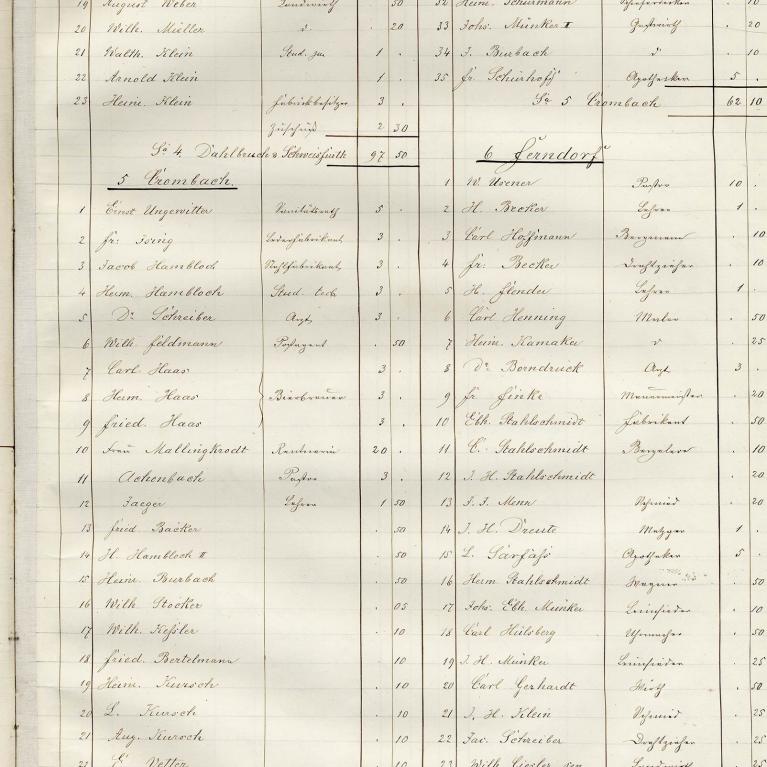 19 August Weber Landwirth . 50
20 Wilh. Müller d. . 20
21 Walth. Klein Stud. jur. 1 .
22 Arnold Klein 1 .
23 Heinr. Klein Fabrikbesitzer 3 .
Zuschuß 2 30
Sa 4. Dahlbruch & Schweisfurth 97 50
5 Crombach.
1 Ernst Ungewitter Sanitätsrath 5 .
2 Fr: Ising Lederfabrikant 3 .
3 Jacob Hambloch Stahlfabrikant 3 .
4 Heinr. Hambloch Stud. tech. 3 .
5 Dr Schreiber Arzt 3 .
6 Wilh. Feldmann Postagent . 50
7 Carl Haas 3 .
8 Heinr. Haas Bierbrauer 3 .
9 Fried. Haas 3 .
10 Frau Mallingkrodt Rentnerin 20 .
11 Achenbach Pastor 3 .
12 Jaeger Lehrer 1 50
13 Fried. Bäcker . 50
14 H. Hambloch II . 50
15 Heinr. Burbach . 50
16 Wilh. Stocker . 05
17 Wilh. Keßler . 10
18 Fried. Bertelmann . 10
19 Heinr. Kursch . 10
20 L. Kursch . 10
21 Aug. Kursch . 10
Vetter
32 Heinr. Schürmann Schieferdecker . 10
33 Johs. Münker II Gastwirth . 20
34 J. Burbach d. . 10
35 Fr. Schürhoff Apotheker 5 .
Sa 5 Crombach 62 10
6 Ferndorf
1 W. Usener Pastor 10 .
2 H. Becker Lehrer 1 .
3 Carl Hoffmann Bergmann . 10
4 Fr: Becker Drahtzieher . 10
5 H. Flender Lehrer 1 .
6 Carl Henning Maler . 50
7 Heinr. Kamaker d . 25
8 Dr Borndruck Arzt 3 .
9 Fr Finke Maurermeister . 20
10 Ebh. Stahlschmidt Fabrikant . 50
11 C. Stahlschmidt . 10
12 J. H. Stahlschmidt . 20
13 J. J. Menn Schmied . 20
14 J. H. Dreute Metzger 1 .
15 L. Sarfaß Apotheker 5 .
16 Herm Stahlschmidt Wagner . 50
17 Johs. Ebh. Münker Leimsieder . 10
18 Carl Hülsberg Uhrmacher . 50
19 J. H. Münker Leimsieder . 25
20 Carl Gerhardt Wirth . 50
21 J. H. Klein Schmied . 25
22 Jac. Schreiber Drahtzieher . 25
23 Wilh. Giesler sen Landwirth . 25